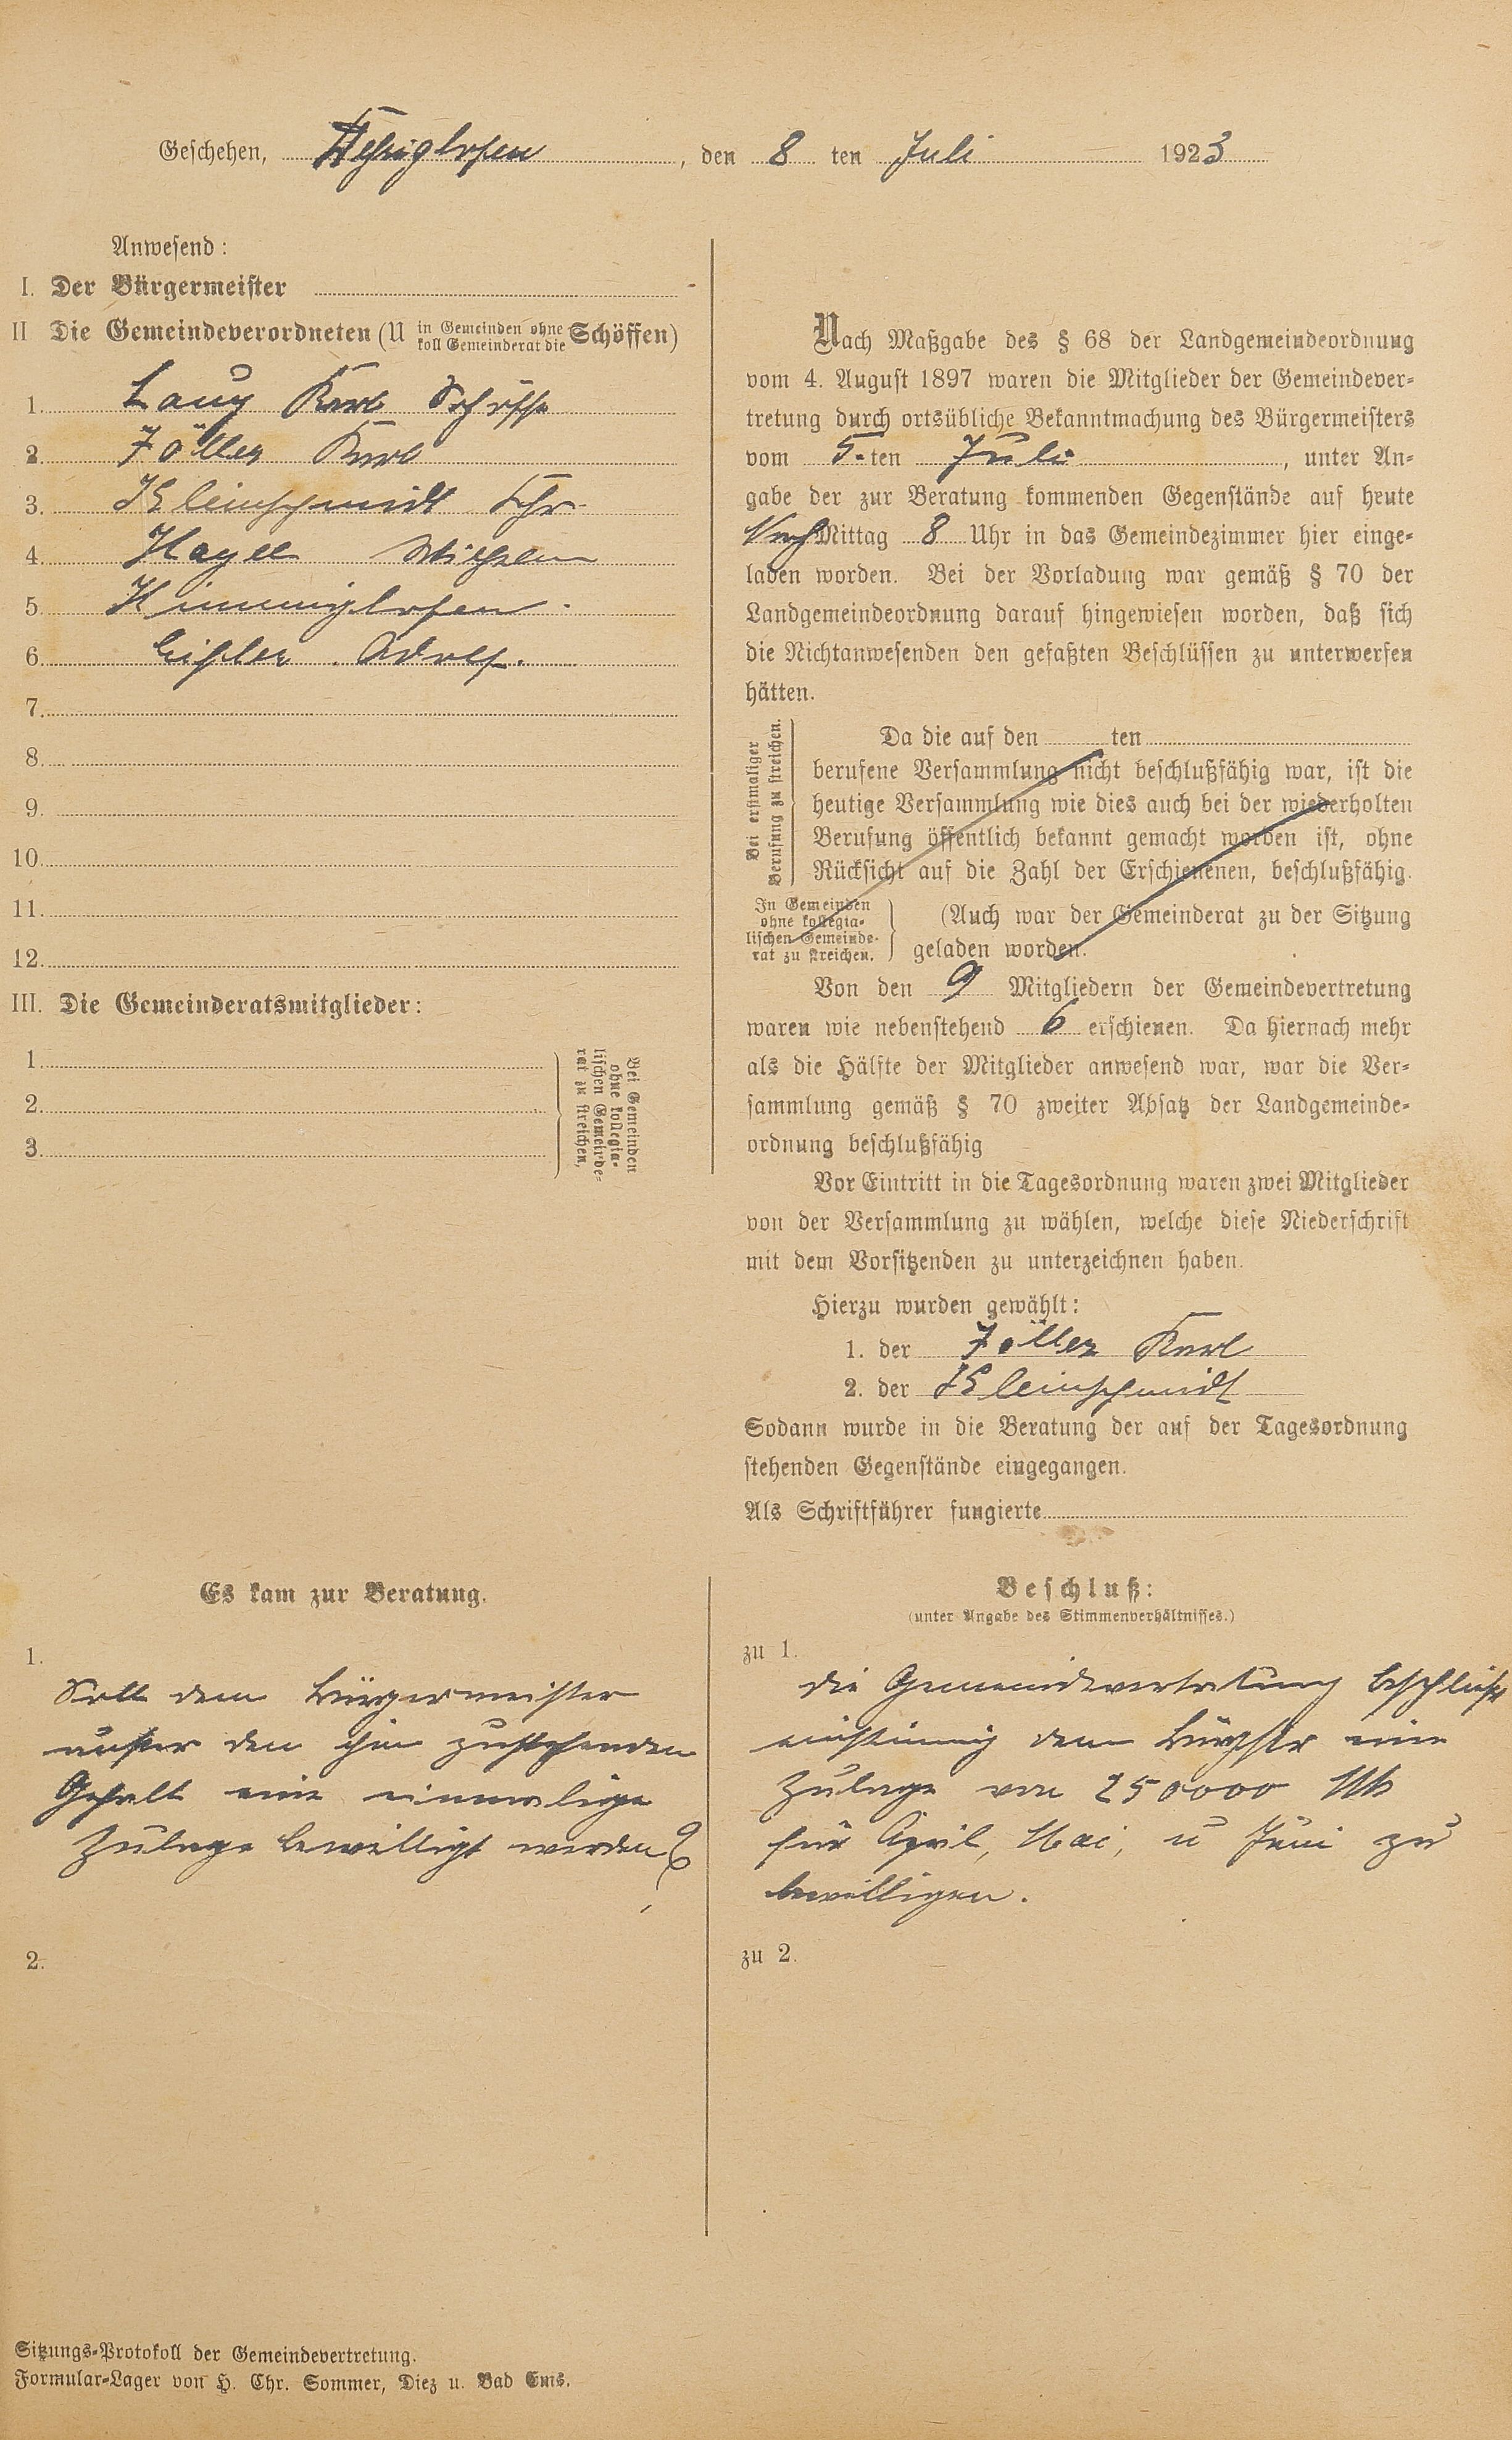 Geschehen, , den 8 ten Juli 1923
Anwesend:
I. Der Bürgermeister
II Die Gemeindeverordneten (U in Gemeinden ohne koll Gemeinderat die Schöffen)
1. Lauy Karl Schöffe
2. Zöller Karl
3. Kleinschmidt Chr
4. Hagel Wilhelm
5. Himmighofen.
6. Adolf.
7.
8.
9.
10.
11.
12.
III. Die Gemeinderatsmitglieder:
1.
2.
3.
Bei Gemeinden
ohne kollegia-
lischen Gemeinde-
rat zu streichen,
Nach Maßgabe des § 68 der Landgemeindeordnung
vom 4. August 1897 waren die Mitglieder der Gemeindever-
tretung durch ortsübliche Bekanntmachung des Bürgermeisters
vom 5. ten Juli , unter An-
gabe der zur Beratung kommenden Gegenstände auf heute
Nach Mittag 8 Uhr in das Gemeindezimmer hier einge-
laden worden. Bei der Vorladung war gemäß § 70 der
Landgemeindeordnung darauf hingewiesen worden, daß sich
die Nichtanwesenden den gefaßten Beschlüssen zu unterwerfen
hätten.
Bei erstmaliger
Berufung zu streichen.
Da die auf den ten
berufene Versammlung nicht beschlußfähig war, ist die
heutige Versammlung wie dies auch bei der wiederholten
Berufung öffentlich bekannt gemacht worden ist, ohne
Rücksicht auf die Zahl der Erschienenen, beschlußfähig.
In Gemeinden
ohne kollegia-
lischen Gemeinde-
rat zu streichen.
(Auch war der Gemeinderat zu der Sitzung
geladen worden.
Von den 9 Mitgliedern der Gemeindevertretung
waren wie nebenstehend 6 erschienen. Da hiernach mehr
als die Hälfte der Mitglieder anwesend war, war die Ver-
sammlung gemäß § 70 zweiter Absatz der Landgemeinde-
ordnung beschlußfähig
Vor Eintritt in die Tagesordnung waren zwei Mitglieder
von der Versammlung zu wählen, welche diese Niederschrift
mit dem Vorsitzenden zu unterzeichnen haben.
Hierzu wurden gewählt:
1. der Zöller Karl
2. der Kleinschmidt
Sodann wurde in die Beratung der auf der Tagesordnung
stehenden Gegenstände eingegangen.
Als Schriftführer fungierte
Es kam zur Beratung.
1.
Soll dem Bürgermeister
außer den ihm zustehenden
Gehalt eine einmalige
Zulage bewilligt werden?
2.
Beschluß:
(unter Angabe des Stimmenverhältnisses.)
zu 1.
die Gemeindevertretung beschließt
einstimmig dem Bürgstr eine
Zulage von 250000 Mk
für April, Mai, u Juni zu
bewilligen.
zu 2.
Sitzungs-Protokoll der Gemeindevertretung.
Formular-Lager von H. Chr. Sommer, Diez u. Bad Ems.